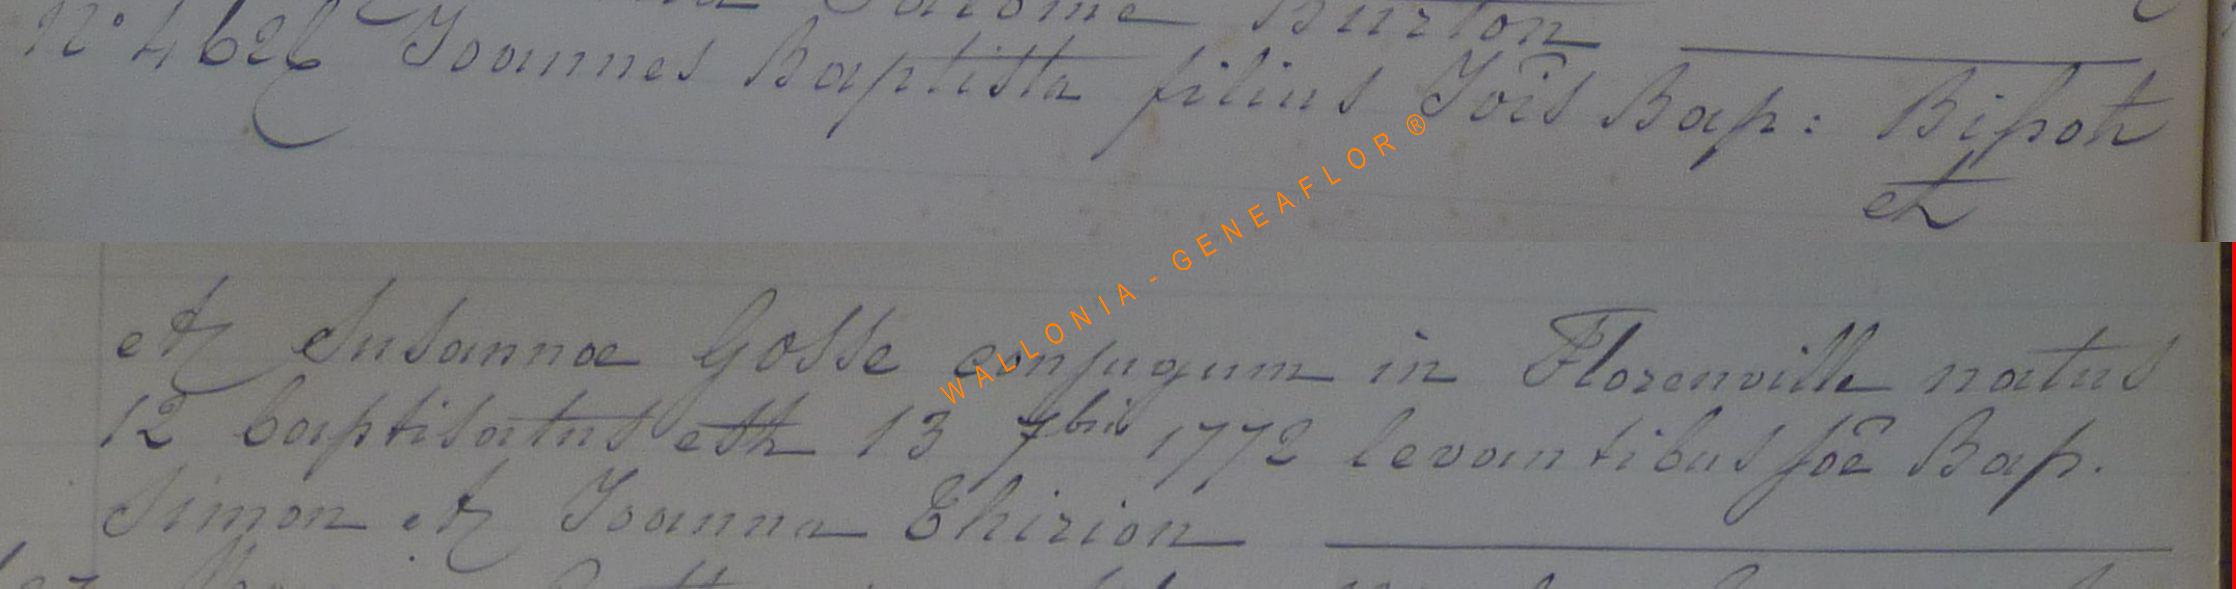 Salome Burton
N° 462 Joannes Baptista filius Jois Bap: Bihot
et
et Susannae Gosse conjugum in Florenville natus
12 baptisatus est 13 7bris 1772 levantibus Joe Bap.
Simon et Joanna Thirion
WALLONIA - GENEAFLOR ®